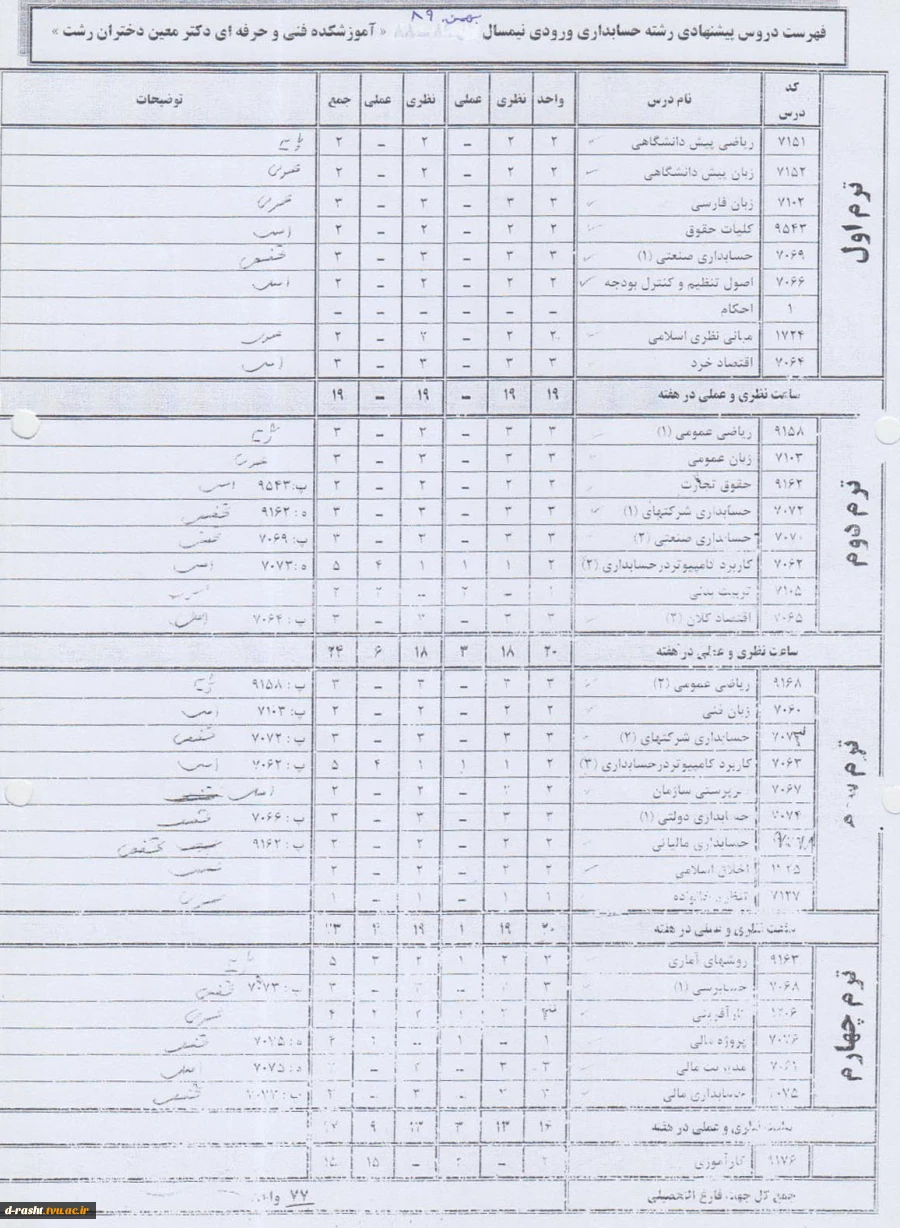 بهمن ۸۹
فهرست دروس پیشنهادی رشته حسابداری ورودی نیمسال « آموزشکده فنی و حرفه ای دکتر معین دختران رشت »
کد درس نام درس واحد نظری عملی نظری عملی جمع توضیحات
ترم اول
۷۱۵۱ ریاضی پیش دانشگاهی ۲ ۲ – ۲ – ۲ پایه
۷۱۵۲ زبان پیش دانشگاهی ۲ ۲ – ۲ – ۲ عمومی
۷۱۰۲ زبان فارسی ۳ ۳ – ۳ – ۳ عمومی
۹۵۴۳ کلیات حقوق ۲ ۲ – ۲ – ۲ اصلی
۷۰۶۹ حسابداری صنعتی (۱) ۳ ۳ – ۳ – ۳ تخصصی
۷۰۶۶ اصول تنظیم و کنترل بودجه ۲ ۲ – ۲ – ۲ اصلی
۱ احکام – – – – – –
۱۷۲۴ مبانی نظری اسلامی ۲ ۲ – ۲ – ۲ عمومی
۷۰۶۴ اقتصاد خرد ۳ ۳ – ۳ – ۳ اصلی
ساعت نظری و عملی در هفته ۱۹ ۱۹ – ۱۹ – ۱۹
ترم دوم
۹۱۵۸ ریاضی عمومی (۱) ۳ ۳ – ۳ – ۳ پایه
۷۱۰۳ زبان عمومی ۳ ۳ – ۳ – ۳ عمومی
۹۱۶۲ حقوق تجارت ۲ ۲ – ۲ – ۲ پ: ۹۵۴۳ اصلی
۷۰۷۲ حسابداری شرکتهای (۱) ۳ ۳ – ۳ – ۳ ه: ۹۱۶۲ تخصصی
۷۰۷۰ حسابداری صنعتی (۲) ۳ ۳ – ۳ – ۳ پ: ۷۰۶۹ تخصصی
۷۰۶۲ کاربرد کامپیوتردرحسابداری (۲) ۲ ۱ ۱ ۱ ۴ ۵ ه: ۷۰۷۳ اصلی
۷۱۰۵ تربیت بدنی ۱ – ۲ – ۲ ۲
۷۰۶۵ اقتصاد کلان (۲) ۳ ۳ – ۳ – ۳ پ: ۷۰۶۴ اصلی
ساعت نظری و عملی در هفته ۲۰ ۱۸ ۳ ۱۸ ۶ ۲۴
ترم سوم
۹۱۶۸ ریاضی عمومی (۲) ۳ ۳ – ۳ – ۳ پ: ۹۱۵۸ پایه
۷۰۶۰ زبان فنی ۲ ۲ – ۲ – ۲ پ: ۷۱۰۳ اصلی
۷۰۷۳ حسابداری شرکتهای (۲) ۳ ۳ – ۳ – ۳ پ: ۷۰۷۲ تخصصی
۷۰۶۳ کاربرد کامپیوتردرحسابداری (۳) ۲ ۱ ۱ ۱ ۴ ۵ پ: ۷۰۶۲ اصلی
۷۰۶۷ سرپرستی سازمان ۲ ۲ – ۲ – ۲ اصلی
۷۰۷۴ حسابداری دولتی (۱) ۳ ۳ – ۳ – ۳ پ: ۷۰۶۶ تخصصی
حسابداری مالیاتی ۲ ۲ – ۲ – ۲ پ: ۹۱۶۲ تخصصی
اخلاق اسلامی ۲ ۲ – ۲ – ۲ عمومی
۷۱۲۷ تنظیم خانواده ۱ ۱ – ۱ – ۱ عمومی
ساعت نظری و عملی در هفته ۲۰ ۱۹ ۱ ۱۹ ۴ ۲۳
ترم چهارم
۹۱۶۳ روشهای آماری ۳ ۲ ۱ ۲ ۳ ۵ پایه
۷۰۶۸ حسابرسی (۱) ۳ – – ۳ پ: ۷۰۷۳ تخصصی
کارآفرینی ۴
۷۰۷۶ پروژه مالی ۱ – ۱ ه: ۷۰۷۵ تخصصی
۷۰۶۱ مدیریت مالی ه: ۷۰۷۵ اصلی
۷۰۷۵ حسابداری مالی تخصصی
ساعت نظری و عملی در هفته ۱۶ ۱۳ ۳ ۱۳ ۹
۹۱۷۶ کارآموزی ۲ – ۲ – ۱۵ ۱۵
جمع کل جهت فارغ التحصیلی ۷۷ واحد
d-rasht.tvu.ac.ir